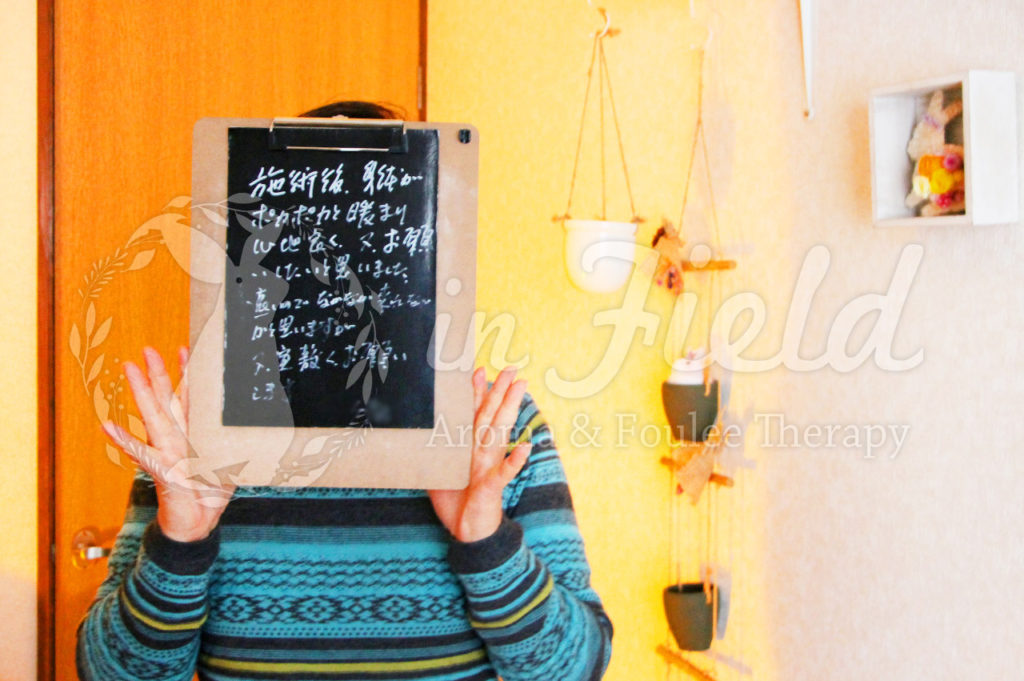 施術後、身体が
ポカポカと暖まり
心地良く、又お願
いしたいと思いました
遠いのでなかなか来れない
かと思いますが
又宜敷くお願い
します
in Field
Aroma & Foulee Therapy